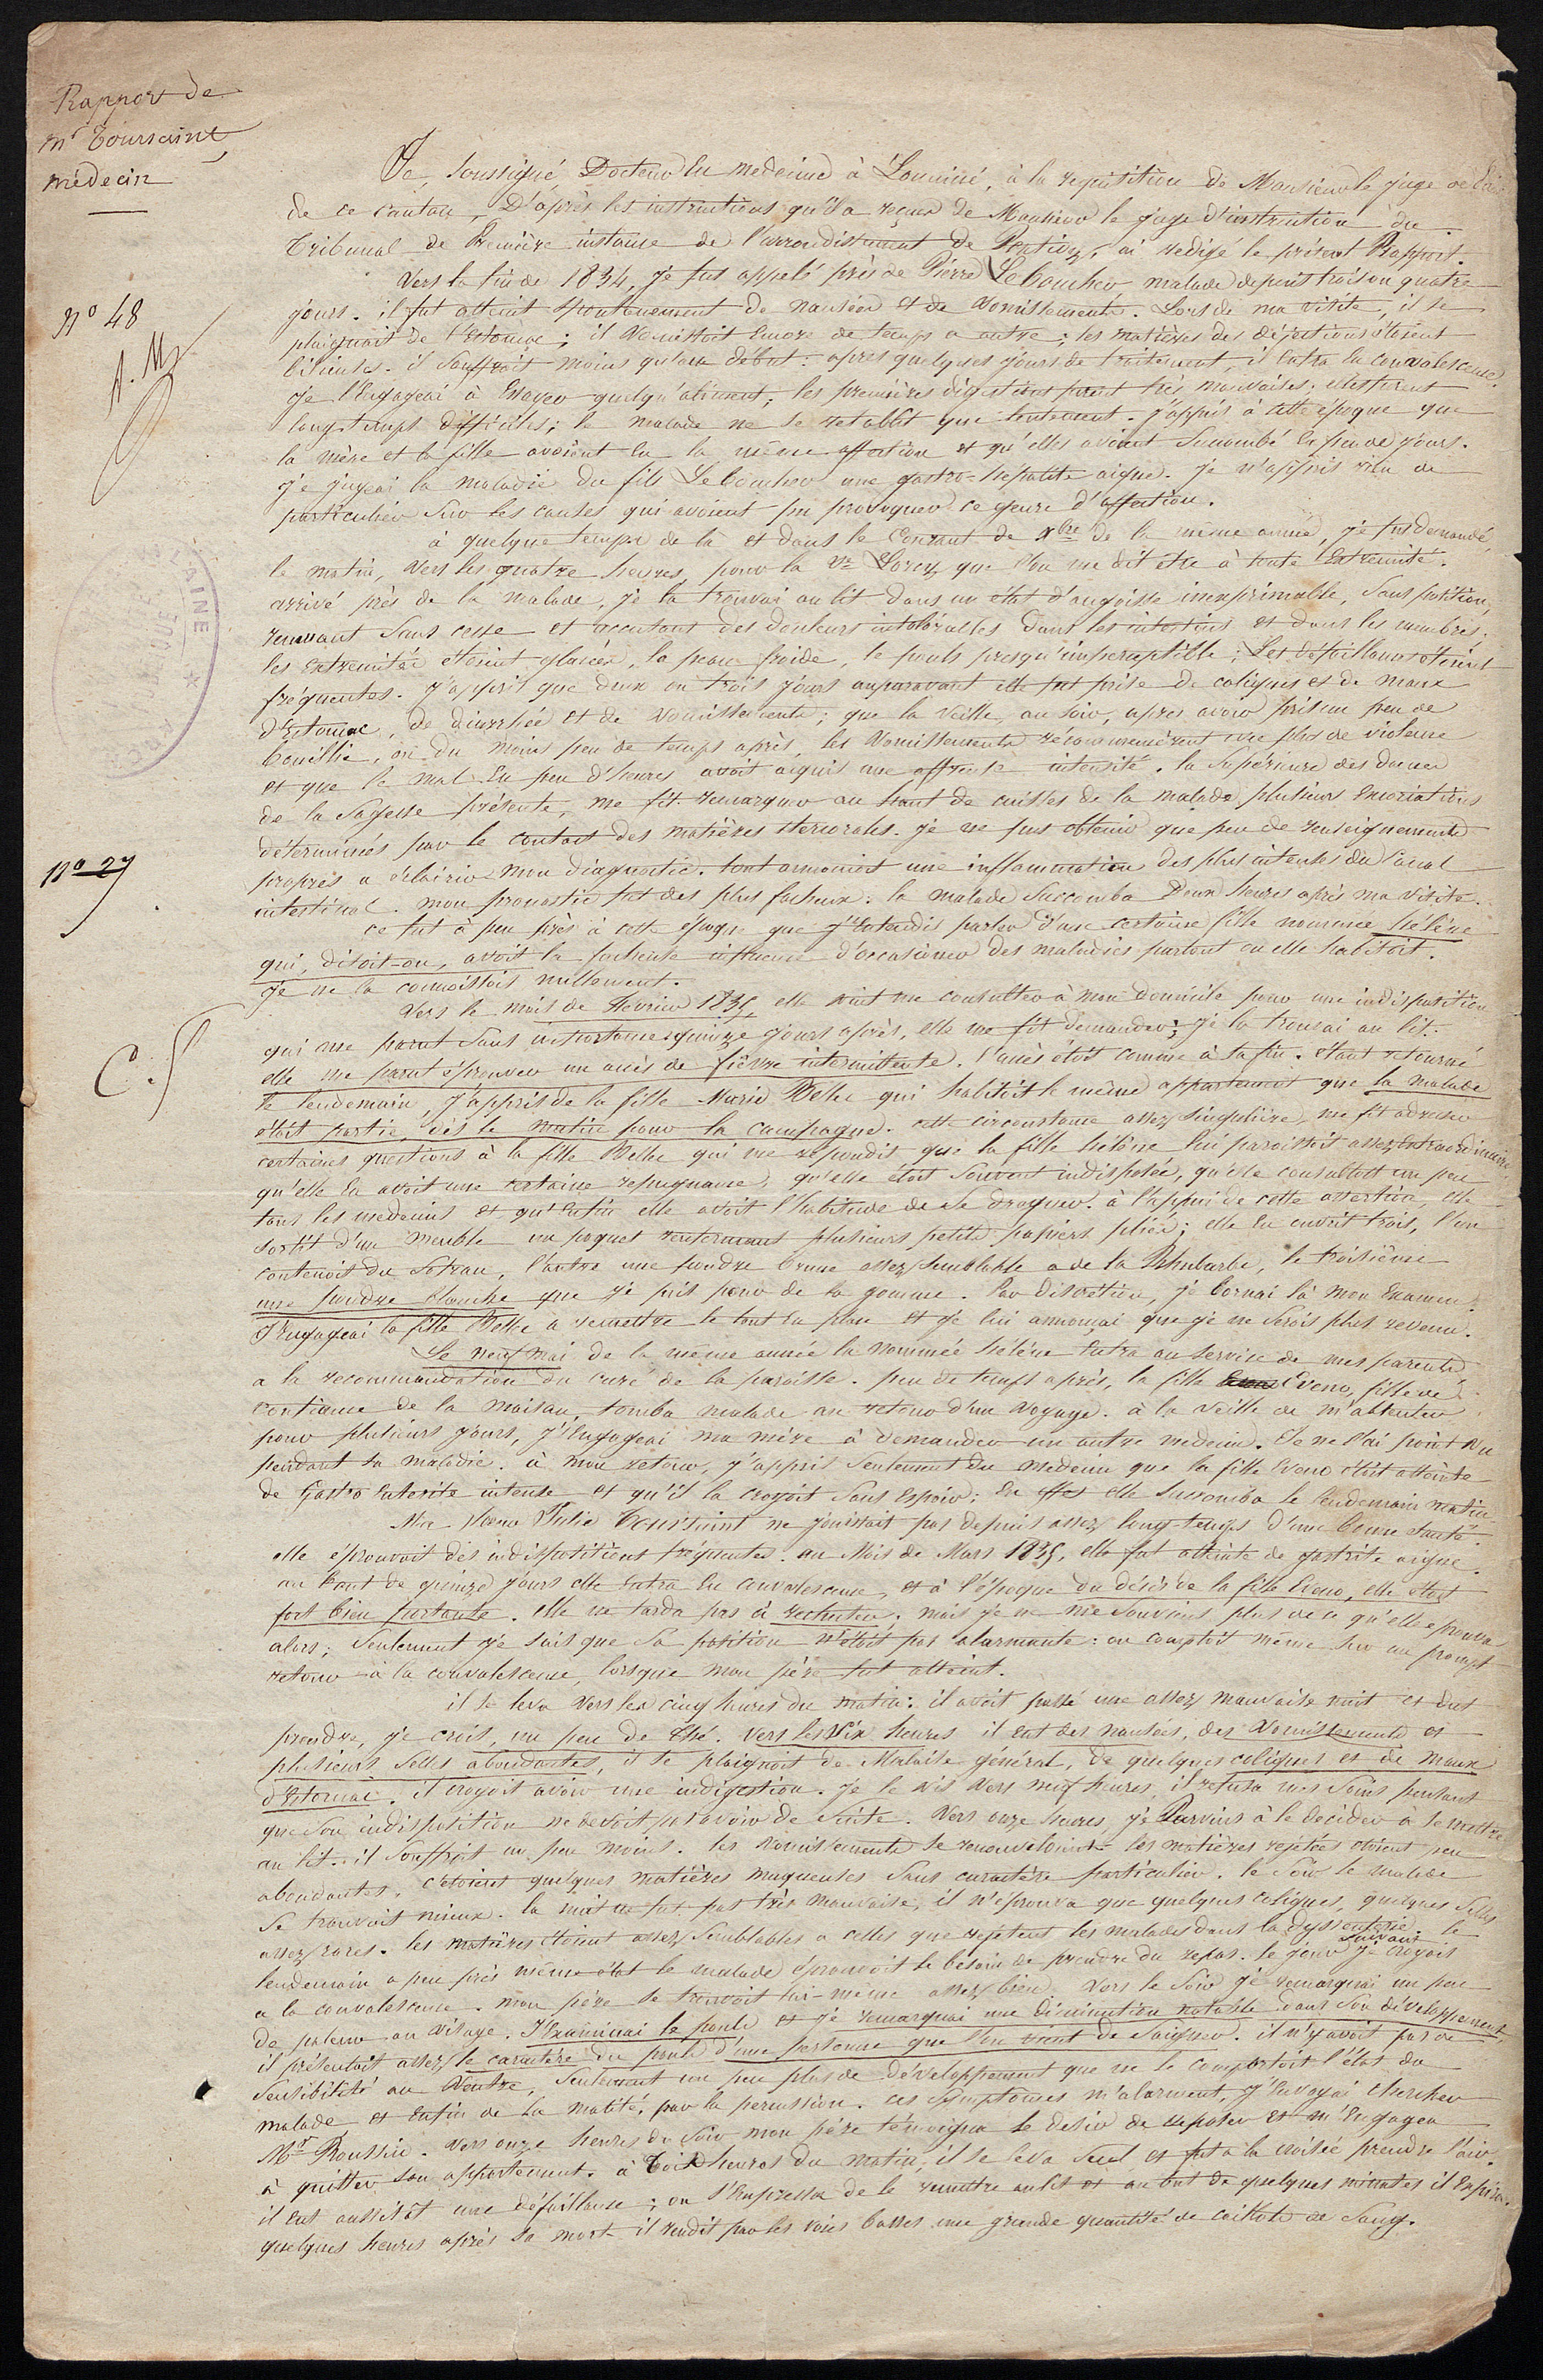 Rapport de
mr Toursaint
médecin
Je, soussigné Docteur en medecine à Locminé, à la requisition de Monsieur le juge de Paix
de ce canton, D'après les instructions qu'il a reçues de Monsieur le juge d'instruction du
Tribunal de Première instance de l'arrondissement de Pontivy, ai redigé le présent Rapport.
Vers la fin de 1834, je fus appelé près de Pierre Le boucher malade depuis trois ou quatre
nº 48
jours. il fut atteint spontanement de nausées et de vomissements. Lors de ma visite, il se
plaignait de l'estomac ; il vomissoit encore de temps a autre ; les matières des déjections étoient
bilieuses. il souffrait moins qu'au début : apres quelques jours de traitement, il entra en convalescence.
je l'engageai à essayer quelqu'aliment ; les premières digestions furent très mauvaises. elles furent
longtemps difficiles ; le malade ne se retablit que lentement. j'appris à cette époque que
la mère et la fille avoient eu la même affection et qu'elles avoient succombé en peu de jours.
je jugeai la maladie du fils Le boucher une gastro-hepatite aigue. je n'appris rien de
particulier sur les causes qui avoient pu provoquer ce genre d'affection.
à quelque temps de là et dans le courant de xbre de la même année, je fus demandé,
le matin, vers les quatre heures, pour la ve Lorcy que l'on me dit être à toute extremité.
arrivé près de la malade, je la trouvai au lit dans un état d'angoisse inexprimable, sans position,
remuant sans cesse et accusant des douleurs intolérables dans les intestins et dans les membres.
les extremités étoient glacées, la peau froide, le pouls presqu'imperceptible ; Les défaillances étoient
fréquentes. j'appris que deux ou trois jours auparavant elle fut prise de coliques et de maux
d'estomac, de diarrhée et de vomissements ; que la veille, au soir, apres avoir pris un peu de
bouillie, ou du moins peu de temps après, les vomissements recommencèrent avec plus de violence
et que le mal en peu d'heures avoit acquis une affreuse intensité. la Supérieure des dames
de la Sagesse présente, me fit remarquer au haut de cuisses de la malade plusieurs excoriations
déterminées par le contact des matières stercorales. je ne pus obtenir que peu de renseignements
nº 27
propres a éclairer mon diagnostic. tout annoncoit une inflammation des plus intenses du Canal
intestinal. mon pronostic fut des plus facheux : la malade succomba deux heures après ma visite.
ce fut à peu près à cette époque que j'entendis parler d'une certaine fille nommée Hélène
qui, disoit-on, avoit la facheuse influence d'occasioner des maladies partout ou elle habitoit.
je ne la connoissois nullement.
Vers le mois de Février 1835, elle vint me consulter à mon domicile pour une indisposition
C. f
qui me parut sans importance. quinze jours après, elle me fit demander ; je la trouvai au lit.
elle me parut éprouver un accès de fièvre intermittente. l'accès étoit comme à sa fin. étant retourné
le lendemain, j'appris de la fille Marie Bellec qui habitoit le même appartement que la malade
étoit partie, dès le matin pour la campagne. cette circonstance assez singulière, me fit adresser
certaines questions à la fille Bellec qui me repondit que la fille Hélène lui paroissoit assez extraordinaire
qu'elle en avoit une certaine repugnance, qu'elle étoit souvent indisposée, qu'elle consultoit un peu
tous les medecins et qu'enfin elle avoit l'habitude de se droguer. à l'appui de cette assertion, elle
sortit d'un meuble un paquet renfermant plusieurs petits papiers pliés ; elle en ouvrit trois, l'un
contenoit du Safran, l'autre une poudre brune assez semblable a de la Rhubarbe, le troisième
une poudre blanche que je pris pour de la gomme. Par discrétion, je bornai là mon examen.
J'engageai la fille Bellec a remettre le tout en place et je lui annonçai que je ne serois plus revenu.
Le neuf mai de la même année la nommée Hélène entra au service de mes parents
a la recommandation du curé de la paroisse. peu de temps après, la fille Eveno, fille de
confiance de la maison, tomba malade au retour d'un voyage. à la veille de m'absenter
pour plusieurs jours, j'engageai ma mère à demander un autre medecin. Je ne l'ai point vu
pendant sa maladie. à mon retour, j'appris seulement du medecin que la fille Eveno étoit atteinte
de Gastro enterite intense et qu'il la croyoit sans espoir ; En effet elle succomba le lendemain matin
Ma soeur Julie Toursaint ne jouissait pas depuis assez long-temps d'une bonne santé.
elle éprouvoit des indispositions fréquentes. au Mois de Mars 1835, elle fut atteinte de gastrite aigue.
au bout de quinze jours elle entra en convalescence, et à l'époque du décès de la fille Eveno, elle étoit
fort bien portante. elle ne tarda pas à rechuter ; mais je ne me souviens plus de ce qu'elle eprouva
alors ; seulement je sais que sa position n'étoit pas alarmante : on comptoit même sur un prompt
retour à la convalescence, lorsque mon père fut atteint.
il se leva vers les cinq heures du matin : il avoit passé une assez mauvaise nuit et dut
prendre, je crois, un peu de thé. vers les dix heures il eut des nausées, des vomissements et
plusieurs selles abondantes, il se plaignoit de Malaise général, de quelques coliques et de maux
d'estomac. il croyoit avoir une indigestion. je le vis vers neuf heures, il refusa mes soins pensant
que son indisposition ne devoit pas avoir de suite. vers onze heures, je Parvins à le decider à se mettre
au lit. il souffroit un peu moins. les vomissements se renouveloient. les matières rejetées étoient peu
abondantes, c'étoient quelques matières muqueuses sans caractère particulier. le soir le malade
se trouvait mieux. la nuit ne fut pas très mauvaise, il n'éprouva que quelques coliques, quelques selles
assez rares. les matières étoient assez semblables a celles que rejètent les malades dans la dyssenterie. le
lendemain a peu près même état le malade éprouvoit le besoin de prendre du repos. le jour suivant je croyois
a la convalescence. mon père se trouvoit lui-même assez bien. vers le soir je remarquai un peu
de paleur au visage. J'examinai le pouls et je remarquai une diminution notable dans son développement,
il présentait assez le caractère du pouls d'une personne que l'on vient de saigner. il n'y avoit pas de
sensibilité au ventre, seulement un peu plus de développement que ne le comportoit l'état du
malade et enfin de la matité, par la percussion. ces symptômes m'alarment, j'envoyai chercher
Mr Roussin. vers onze heures du soir mon père témoigna le desir de reposer et m'engagea
à quitter son appartement. à trois heures du matin, il se leva seul et fut a la croisée prendre l'air.
il eut aussitôt une défaillance ; on s'empressa de le remettre au lit et au bout de quelques minutes il expira.
quelques heures après sa mort il rendit par les voies basses une grande quantité de caillots de Sang.